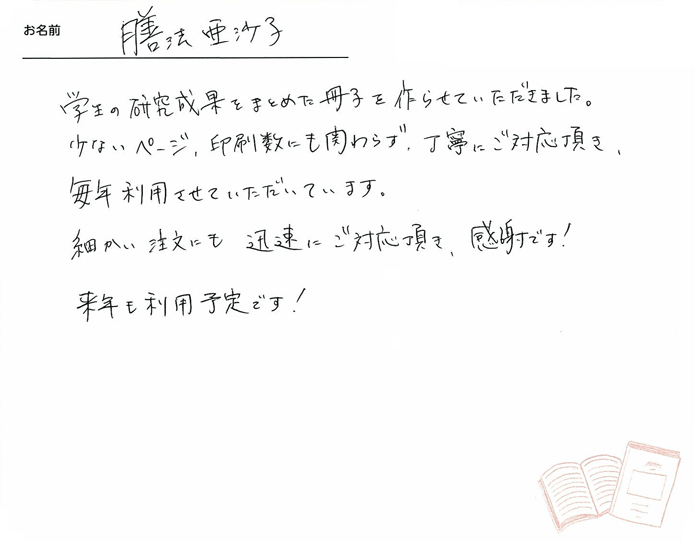 お名前 膳法 亜沙子
学生の研究成果をまとめた冊子を作らせていただきました。
少ないページ、印刷数にも関わらず、丁寧にご対応頂き、
毎年利用させていただいています。
細かい注文にも 迅速にご対応頂き、感謝です!
来年も利用予定です!